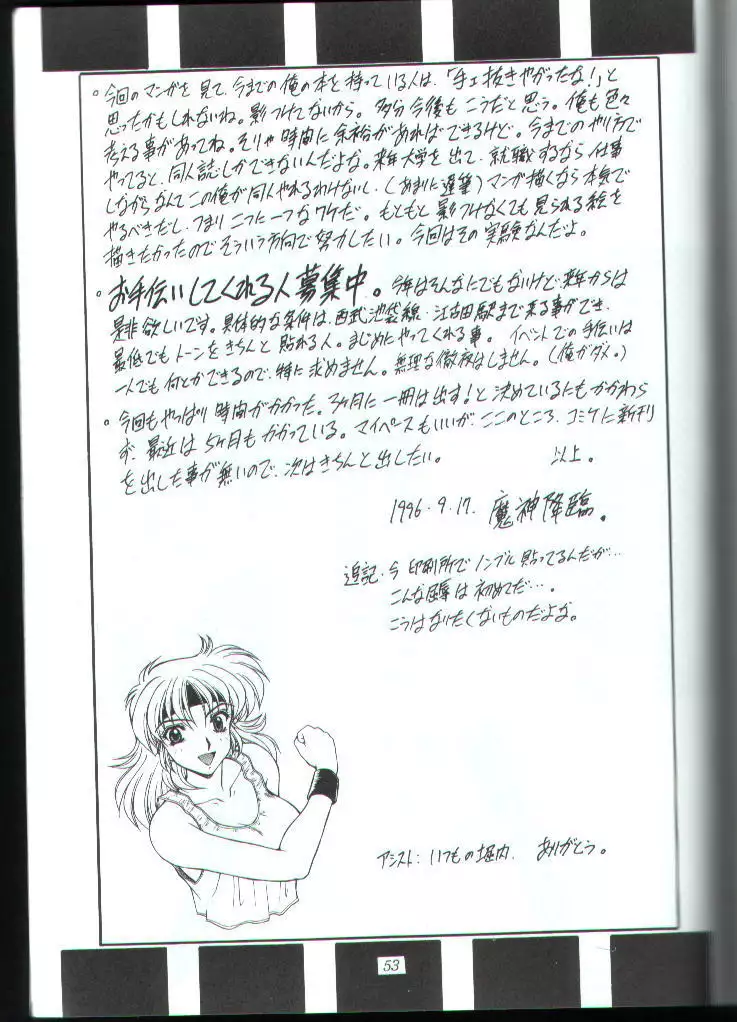 。今回のマンガを見て、今までの俺の本を持っている人は、「手ェ抜きやがったな!」と
思ったかもしれないね。影つけてないから。多分今後もこうだと思う。俺も色々
考える事があってね。そりゃ時間に余裕があればできるけど。今までのやり方で
やってると、同人誌しかできないんだよな。来年大学を出て、就職するなら仕事
しながらなんてこの俺が同人やれるわけないし、(あまりに遅筆)マンガ描くなら本気で
やるべきだし、つまり二つに一つなワケだ。もともと影つけなくても見られる絵を
描きたかったのでそういう方向で努力したい。今回はその実験なんだよ。
。お手伝いしてくれる人募集中。今年はそんなにでもないけど、来年からは
是非欲しいです。具体的な条件は、西武池袋線・江古田駅まで来る事ができ、
最低でもトーンをきちんと貼れる人。まじめにやってくれる事。イベントでの手伝いは
一人でも何とかできるので、特に求めません。無理な徹夜はしません。(俺がダメ。)
。今回もやっぱり時間がかかった。3ヶ月に一冊は出す!と決めているにもかかわら
ず、最近は5ヶ月もかかっている。マイペースもいいが、ここのところ、コミケに新刊
を出した事が無いので、次はきちんと出したい。 以上。
1996・9・17. 魔神降臨。
追記・今印刷所でノンブル貼ってるんだが…
こんな屈辱は初めてだ…。
こうはなりたくないものだよな。
アシスト:いつもの堀内、ありがとう。
53